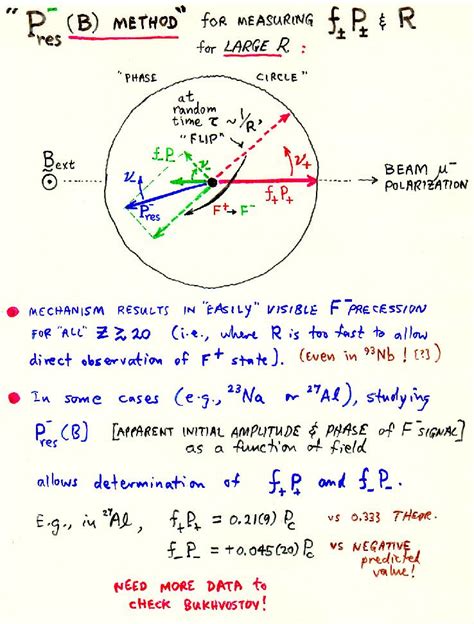 "P⁻res (B) METHOD" FOR MEASURING f±P± & R
for LARGE R :
"PHASE CIRCLE"
at
random
time τ ~ 1/R,
"FLIP"
B̰ext
f₋P₋
ν
ν₋
ν₊
P⁻res
f₊P₊
F⁺→F⁻
BEAM μ⁻
POLARIZATION
• MECHANISM RESULTS IN "EASILY" VISIBLE F⁻ PRECESSION
FOR "ALL" Z ≳ 20 (i.e., where R is too fast to allow
direct observation of F⁺ state). (Even in ⁹³Nb ! [?])
• In some cases (e.g., ²³Na or ²⁷Al), studying
P⁻res (B) [APPARENT INITIAL AMPLITUDE & PHASE of F⁻ SIGNAL]
as a function of field
allows determination of f₊P₊ and f₋P₋.
E.g., in ²⁷Al, f₊P₊ = 0.21(9) Pc vs 0.333 THEOR.
f₋P₋ = +0.045(20) Pc vs NEGATIVE
predicted
value!
NEED MORE DATA to
CHECK BUKHVOSTOV!